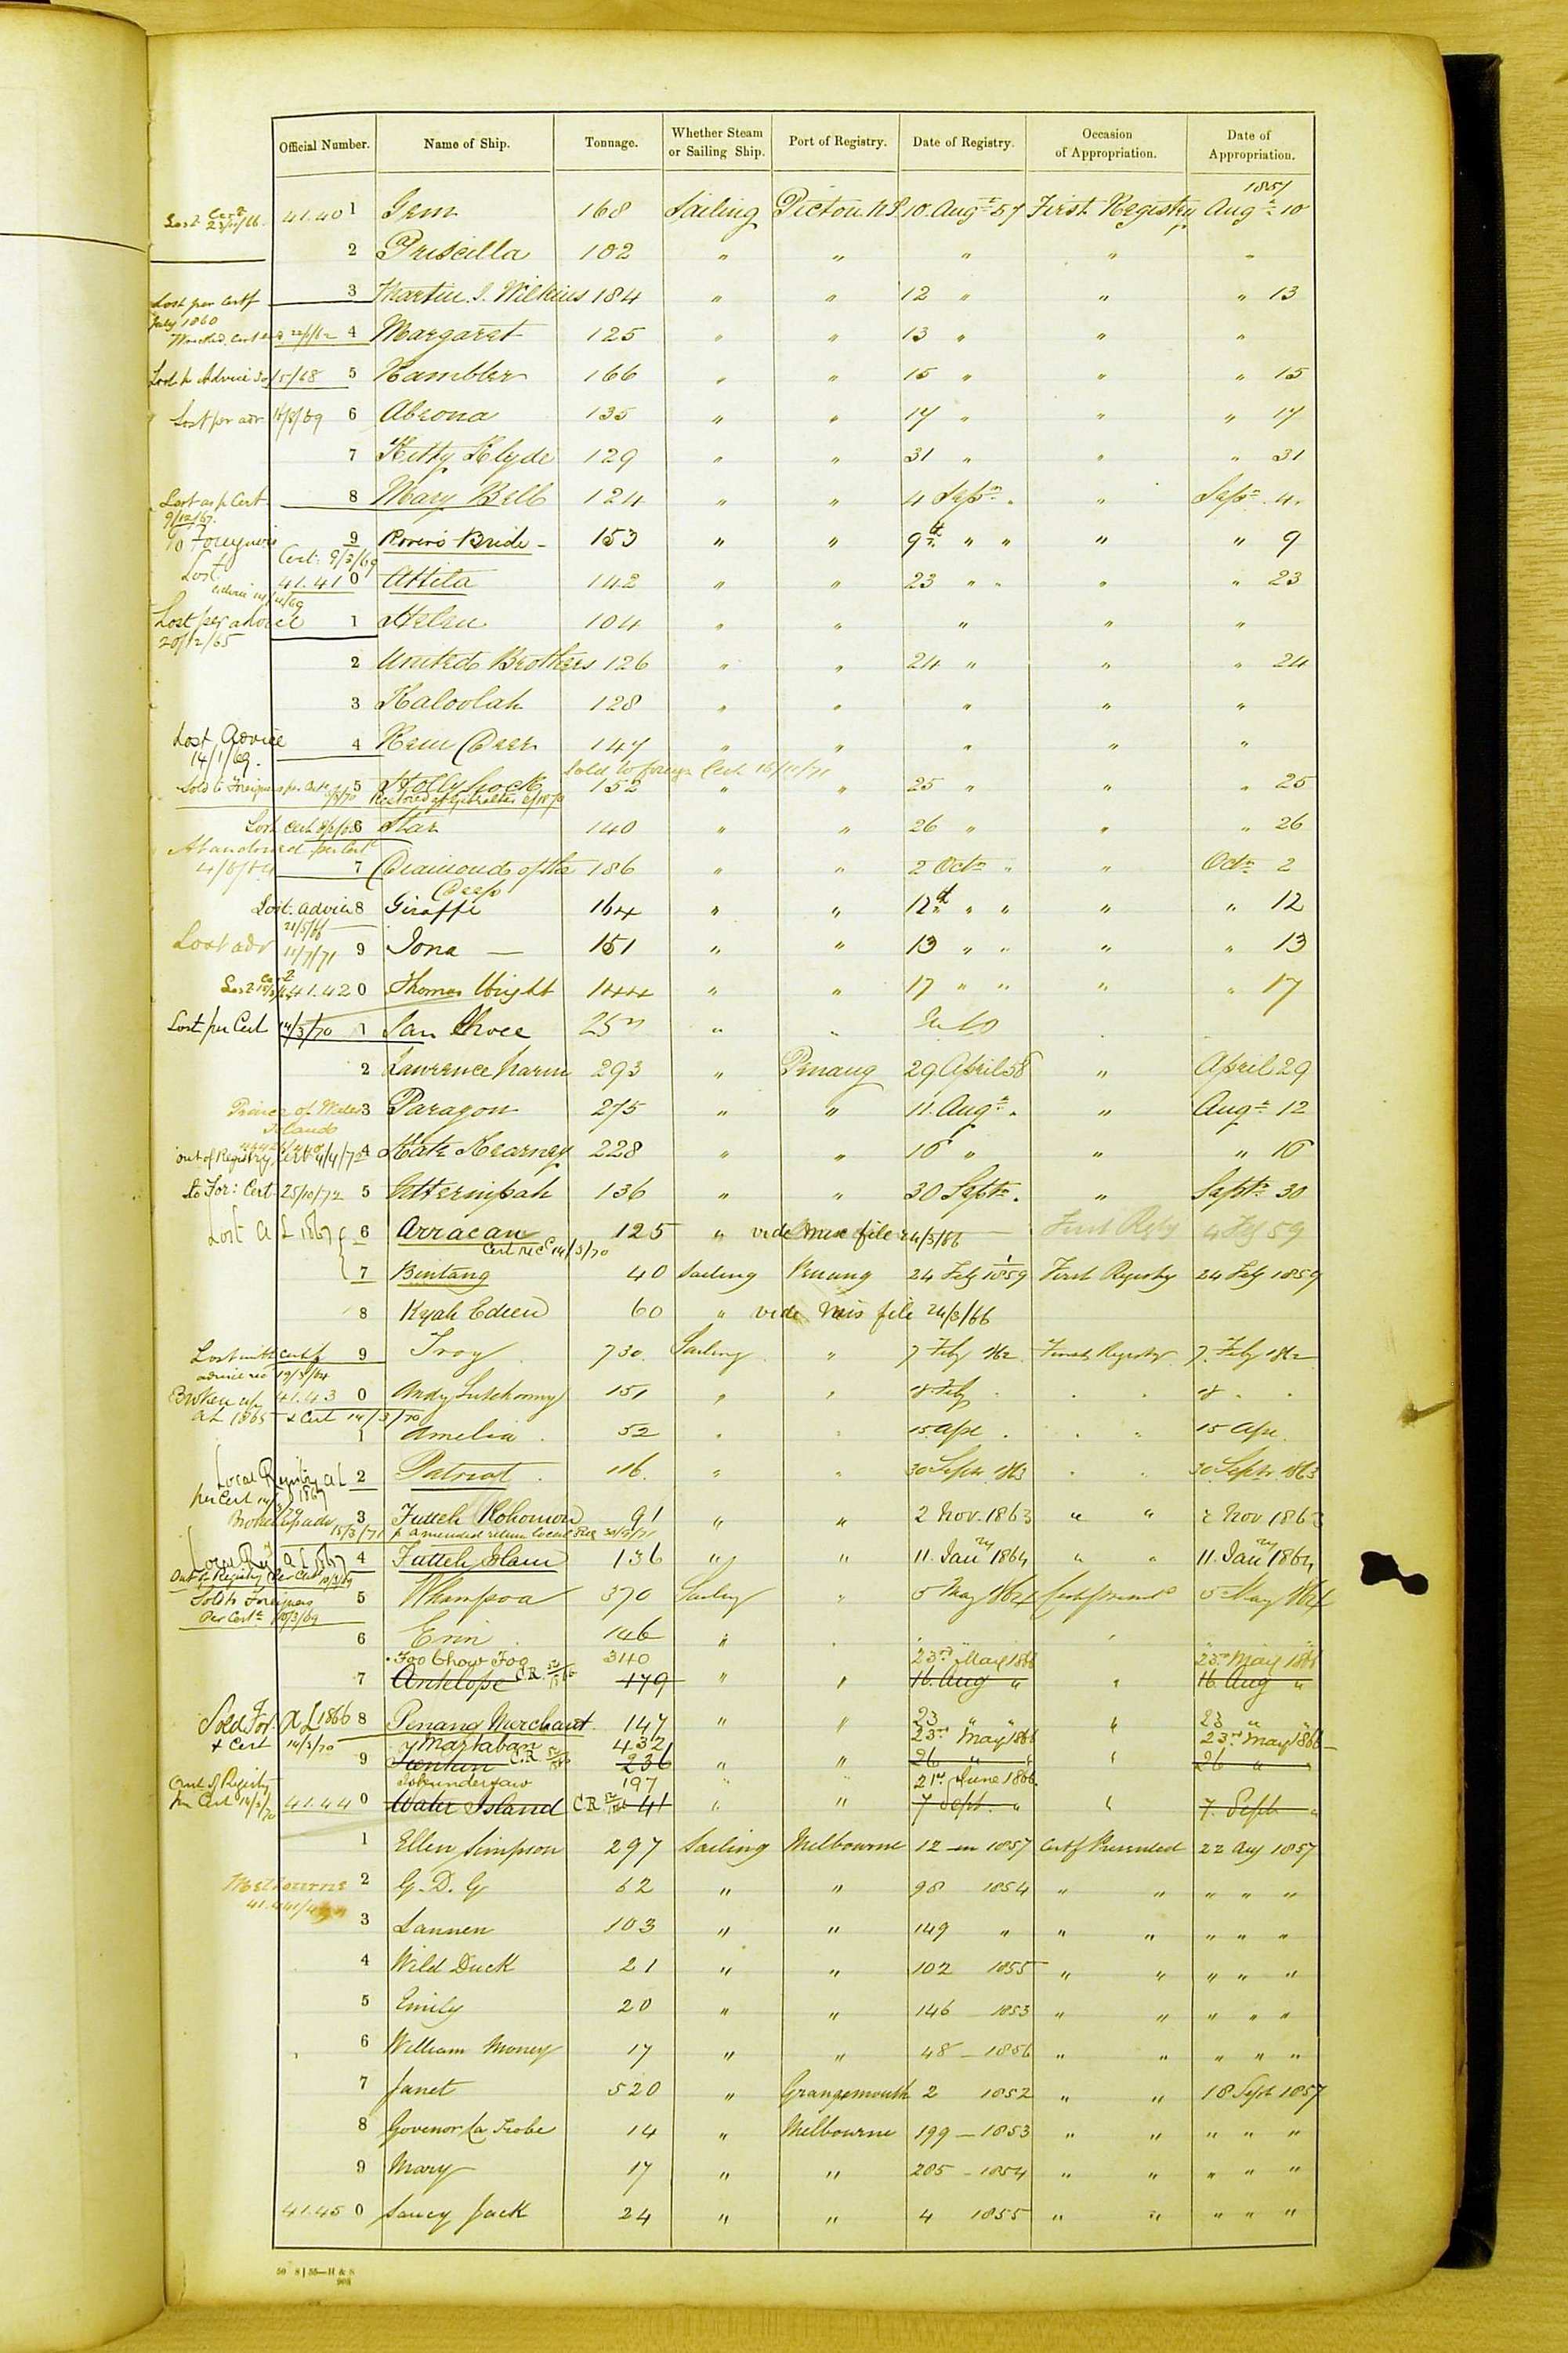 Official Number. Name of Ship. Tonnage. Whether Steam or Sailing Ship. Port of Registry. Date of Registry. Occasion of Appropriation. Date of Appropriation.
1857
41.40 1 Gem 168 Sailing Pictou N.S. 10 Augt 57 First Registry Augt 10
2 Priscilla 102 " " " " "
Lost per Certf July 1860 3 Martin I. Wilkins 184 " " 12 " " " 13
4 Margaret 125 " " 13 " " "
Lost p Advice 30/5/68 5 Rambler 166 " " 15 " " " 15
Lost per adv 6 Abeona 135 " " 17 " " " 17
7 Kitty Klyde 129 " " 31 " " " 31
Lost as p Cert 9/12/67. 8 Mary Bell 124 " " 4 Sepr " " Sepr 4.
To Foreigners Cert: 9/3/69 9 Rover's Bride - 153 " " 9th " " " " 9
Lost 41.41 0 Attila 142 " " 23 " " " " 23
Lost per advice 20/12/65 1 Helen 104 " " " " "
2 United Brothers 126 " " 24 " " " 24
3 Kaloolah 128 " " " " "
Lost Advice 14/1/69. 4 Rein Deer 147 " " " " "
Sold to foreign Cert 16/11/71
5 Hollyhock 152 " " 25 " " " 25
6 Star 140 " " 26 " " " 26
Abandoned per Cert
7 Diamond of the Deep 186 " " 2 Octr " " Octr 2
Lost. advice 21/5/66 8 Giraffe 164 " " 12th " " " " 12
Lost adv 11/7/71 9 Iona — 151 " " 13 " " " " 13
41.42 0 Thomas Wright 144 " " 17 " " " " 17
Lost per Cert 14/3/70 1 San
2 Lawrence 293 " Penang 29 April 58 " April 29
Prince of Wales Island 3 Paragon 275 " " 11. Augt " " Augt 12
out of Registry, Cert 4/4/72 4 Kate Kearney 228 " " 16 " " " 16
to For: Cert 25/10/72 5 136 " " 30 Septr. " Septr 30
Lost A L 1867 6 Arracan 125 " vide Misc file 24/3/66 First Regy 4 Feby 59
Cert recd 14/3/70
7 Bintang 40 Sailing Penang 24 Feby 1859 First Registry 24 Feby 1859
8 Kyah Edeen 60 " vide Mis file 24/3/66
Lost with certf 9 Troy 730. Sailing " 7 Feby 1862 First Registry 7. Feby 1862
Broken up AL 1865 & Cert 14/3/70 41.43 0 151 " " 8 Feby " 8 " "
1 Amelia 52 " " 15 Apl " " 15 Apl
Local Registry AL 1867 per Cert 2 Patriot 116. " " 30 Septr 1863 " " 30 Septr. 1863
3 Futteh Rohomon 91 " " 2 Nov. 1863 " " 2 Nov 1863
15/3/71 p amended return Local Reg
4 Futteh Islam 136 " " 11. Jany 1864 " " 11. Jany 1864
Out of Registry per Cert
Sold to Foreigners Per Certe 10/3/69 5 Whampoa 370 Sailing " 5 May 1864 5 May 1864
6 Erin 146 "
Foo Chow Foo 340 23rd May 1866 23rd May 1866
7 Antelope C.R. 179 " " 16. Aug " " 16. Aug "
Sold For. AL 1866 & Cert 14/3/70 8 Penang Merchant 147 " " 23 " " " 23 " "
Martaban 432 23rd May 1866 23rd May 1866
9 C.R. 236 " " 26 " " 26 " "
197 21st June 1866
Out of Registry per Cert 41.44 0 Water Island C R 41 " " 7 Sept. " " 7. Sept "
1 Ellen Simpson 297 Sailing Melbourne 12 in 1857 Certf Presented 22 Aug 1857
Melbourne 2 G. D. G 62 " " 98 1854 " " " " "
3 Lannen 103 " " 149 " " " " " "
4 Wild Duck 21 " " 102 1855 " " " " "
5 Emily 20 " " 146 1853 " " " " "
6 William Money 17 " " 48 - 1856 " " " " "
7 Janet 520 " Grangemouth 2 1852 " " 18 Sept 1857
8 Govenor La Trobe 14 " Melbourne 199 - 1853 " " " " "
9 Mary 17 " " 205 - 1854 " " " " "
41.45 0 Saucy Jack 24 " " 4 1855 " " " " "
50 8 | 55—H & S